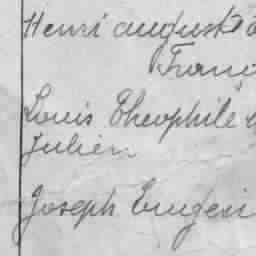 Henri auguste
Franç
Louis Théophile
Julien
Joseph Eugèn